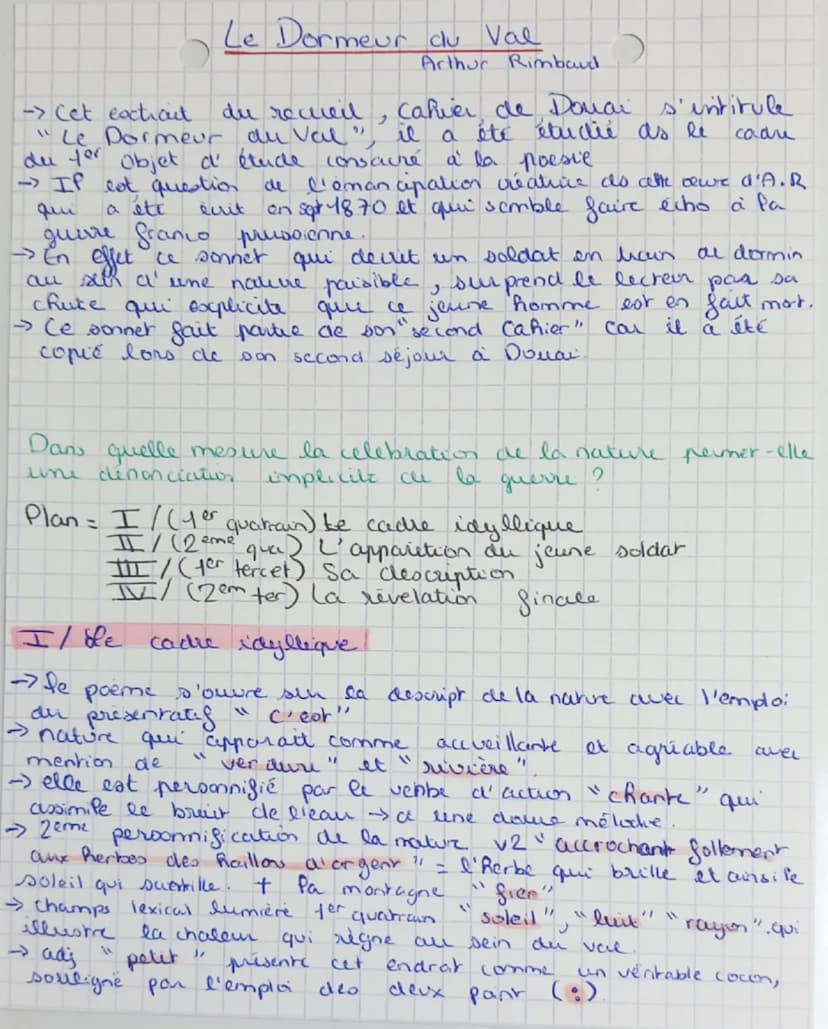 Le Dormeur du Val
Arthur Rimbaud
→ Cet extrait du recueil, Cahier de Douai s'intitule
"Le Dormeur du Val", il a été étudié ds le cadre
du 1er objet d'étude consacré à la poésie
→ Il est question de l'émancipation créatrice ds cette oeuvre d'A.R
qui a été écrit en sept 1870 et qui semble faire écho à la
guerre franco prussienne.
→ En effet ce sonnet qui decrit un soldat en train de dormir
au sein d'une nature paisible, surprend le lecteur par sa
chute qui explicite que ce jeune homme est en fait mort.
→ Ce sonnet fait partie de son "second Cahier" car il a été
copié lors de son second séjour à Douai.
Dans quelle mesure la celebration de la nature permet-elle
une dénonciation implicite de la guerre ?
Plan = I / (1er quatrain) Le cadre idyllique
II / (2ème qua) L'apparition du jeune soldat
III / (1er tercet) Sa description
IV / (2em ter) La révelation finale
I / Le cadre idyllique
→ Le poème s'ouvre sur la descript de la nature avec l'emploi
du présentatif "c'est"
→ nature qui apparait comme accueillante et agréable avec
mention de "verdure" et "rivière".
→ elle est personnifié par le verbe d'action "chante" qui
assimile le bruit de l'eau → a une douce mélodie.
→ 2ème personnification de la nature v2 "accrochant follement
aux herbes des haillons d'argent" = l'herbe qui brille et ainsi le
soleil qui scintille. + la montagne "fier"
→ champs lexical lumière 1er quatrain "soleil", "luit" "rayon". qui
illustre la chaleur qui règne au sein du val.
→ adj "petit" présente cet endroit comme un véritable cocon,
souligné par l'emploi des deux point (:)